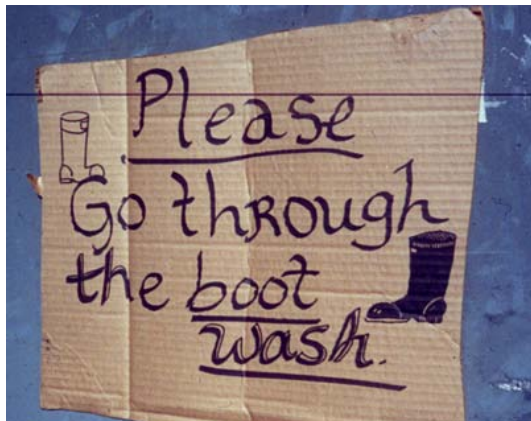 Please
Go through
the boot
wash.